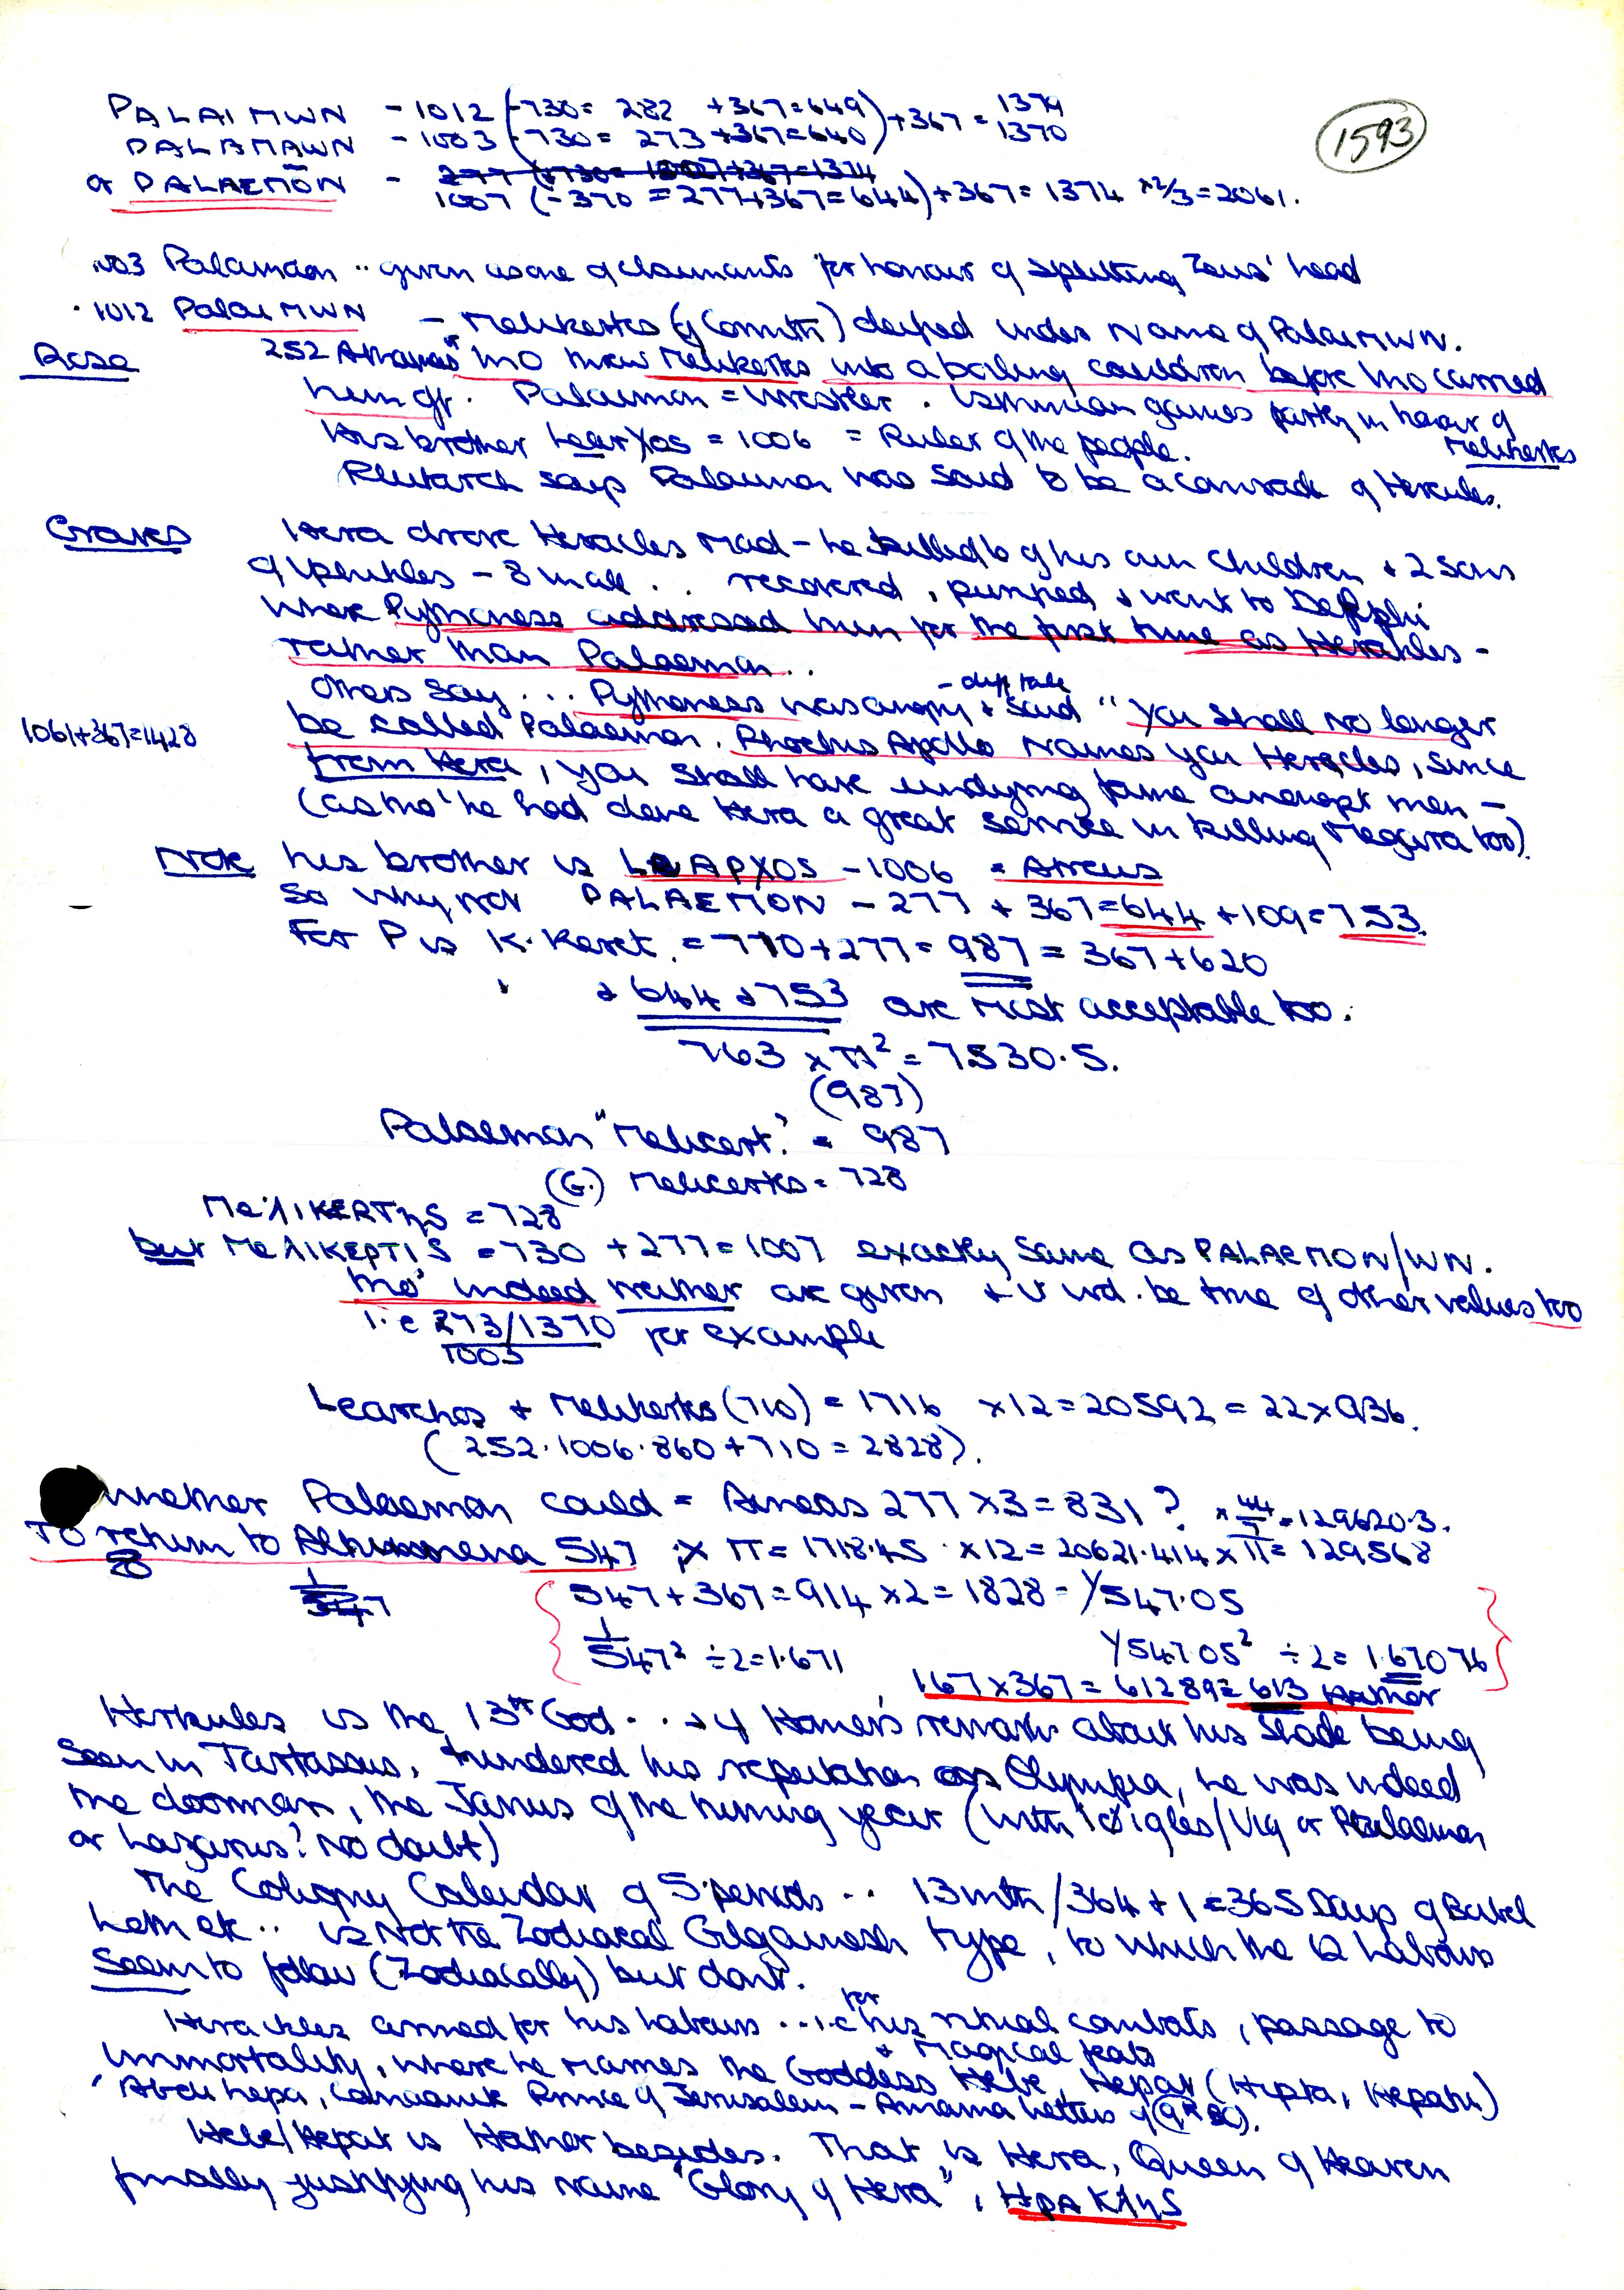 1593
PALAIMWN - 1012 (-730 = 282 +367=649) +367 = 1379
PALAMAWN - 1003 (-730 = 273 +367=640) 1370
or PALAEMŌN - 277 (+730 = 1007+367=1374
1007 (-370 = 277+367=644) +367 = 1374 x 2/3 = 2061.
1003 Palamaon .. given as one of claimants for honour of splitting Zeus' head
1012 PalaiMWN - Melikertes (of Corinth) deified under name of PalaiMWN.
Rose 252 Athamas who threw Melikertes into a boiling cauldron before Ino carried
him off. Palaimon = Wrestler. Isthmian games partly in honour of Melikertes
His brother LearXos = 1006 = Ruler of the people.
Plutarch says Palaimon was said to be a comrade of Hercules.
Graves Hera drove Heracles mad - he killed 6 of his own children + 2 sons
of Iphikles - 8 in all .. recovered, purified & went to Delphi
where Pythoness addressed him for the first time as Herakles -
rather than Palaemon..
Others say ... Pythoness was angry & said "You shall no longer
1061+367=1428 be called Palaemon. Phoebus Apollo names you Heracles, since
from Hera, you shall have undying fame amongst men -
(as tho' he had done Hera a great service in killing Megara too).
Note his brother is LEAPXOS - 1006 = Atreus
So why not PALAEMON - 277 + 367=644 +109=753.
For P is K. Keret. = 710+277= 987 = 367+620
& 644 & 753 are most acceptable too.
763 x π² = 7530.5.
(987)
Palaemon "Melicert." = 987
(G.) Melicertes = 728
MeλIKERTηS = 728
but MeλIKEPTIS = 730 +277=1007 exactly same as PALAEMON/WN.
tho' indeed neither are given & it wd. be true of other values too
i.e 273/1370 for example
1003
Learchos + Melikertes (710) = 1716 x12=20592 = 22x936.
(252.1006.860+710=2828).
Whether Palaemon could = Aineas 277x3=831? x 44/7 = 129620.3.
To return to Alkmena 547 x π = 1718.45 . x12=20621.414 x π = 129568
1/547
547+367=914 x2=1828 - 1/547.05
1/547² ÷2=1.671 1/547.05² ÷2= 1.67076
167x367 = 61289 = 613 Hathor
Herkules is the 13th God ... & if Homer's remark about his shade being
seen in Tartassus, hindered his reputation as Olympia, he was indeed
the doorman, the Janus of the turning year (with or Palaemon
or Lazarus? No doubt)
The Coligny Calendar of 5 periods .. 13mth/364 + 1 = 365 Days of
.. is Not the Zodiacal Gilgamesh type, to which the 12 Labours
seem to follow (Zodiacally) but dont.
Herackles armed for his labours ... i.e for his ritual combats, passage to
immortality, & Magical feats where he marries the Goddess Hebe, Hepat (Hipta, Hepatu)
Abdu hepa, Canaanite Prince of Jerusalem - Amarna Letters
Hebe/Hepat is Hathor besides. That is Hera, Queen of Heaven
finally justifying his name "Glory of Hera", HpAKληS